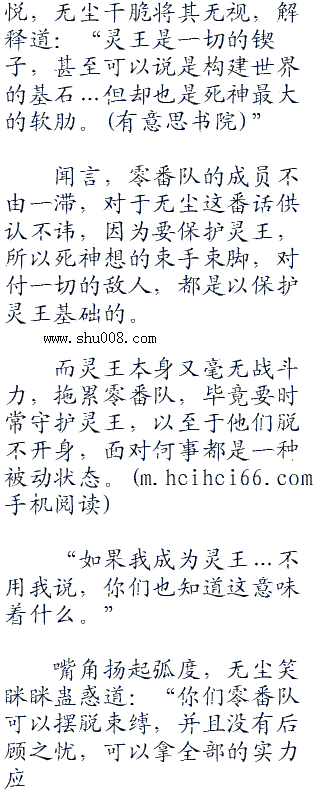 悦，无尘干脆将其无视，解
释道：“灵王是一切的锲
子，甚至可以说是构建世界
的基石…但却也是死神最大
的软肋。(有意思书院)”
闻言，零番队的成员不
由一滞，对于无尘这番话供
认不讳，因为要保护灵王，
所以死神想的束手束脚，对
付一切的敌人，都是以保护
灵王基础的。
www.shu008.com
而灵王本身又毫无战斗
力，拖累零番队，毕竟要时
常守护灵王，以至于他们脱
不开身，面对何事都是一种
被动状态。(m.hcihci66.com
手机阅读)
“如果我成为灵王…不
用我说，你们也知道这意味
着什么。”
嘴角扬起弧度，无尘笑
眯眯蛊惑道：“你们零番队
可以摆脱束缚，并且没有后
顾之忧，可以拿全部的实力
应